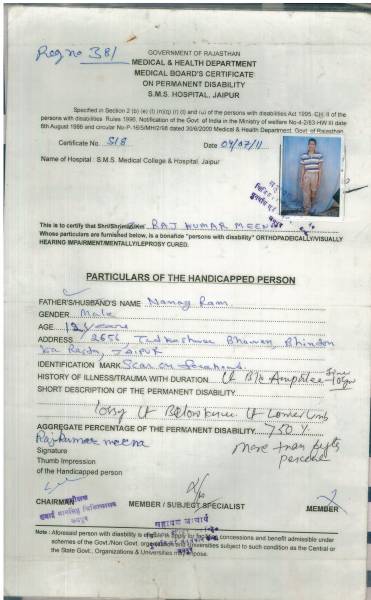 Reg no 381
GOVERNMENT OF RAJASTHAN
MEDICAL & HEALTH DEPARTMENT
MEDICAL BOARD'S CERTIFICATE
ON PERMANENT DISABILITY
S.M.S. HOSPITAL, JAIPUR
Specified in Section 2 (b) (e) (l) (n)(q) (r) (t) and (u) of the persons with disabilities Act 1995. CH II of the
persons with disabilities Rules 1996, Notification of the Govt. of India in the Ministry of welfare No-4-2/83-HW III date
6th August 1986 and circular No-P-16/5/MH/2/98 dated 30/6/2000 Medical & Health Department. Govt. of Rajasthan
Certificate No. 518 Date 04/07/11
Name of Hospital : S.M.S. Medical College & Hospital, Jaipur
This is to certify that Shri/Shrimati/Km RAJ KUMAR MEENA
Whose particulars are furnished below, is a bonafide "persons with disability" ORTHOPADEICALLY/VISUALLY
HEARING IMPAIRMENT/MENTALLY/LEPROSY CURED.
PARTICULARS OF THE HANDICAPPED PERSON
FATHER'S/HUSBAND'S NAME Nanag Ram
GENDER Male
AGE 12 years
ADDRESS 2656, Bhawan, Bhindon
Ka Rasta, JAIPUR
IDENTIFICATION MARK Scar on forehead
HISTORY OF ILLNESS/TRAUMA WITH DURATION Lt B/K Amputee Since
SHORT DESCRIPTION OF THE PERMANENT DISABILITY
Lt Below knee Lt Lower limb
AGGREGATE PERCENTAGE OF THE PERMANENT DISABILITY 750 %
Rajkumar meena
More than fifty
percent
Signature
Thumb Impression
of the Handicapped person
CHAIRMAN MEMBER / SUBJECT SPECIALIST MEMBER
सवाई मानसिंह चिकित्सालय
जयपुर
सहायक आचार्य
जयपुर
Note : Aforesaid person with disability is eligible to apply for facilities concessions and benefit admissible under
schemes of the Govt./Non Govt. organization and Universities subject to such condition as the Central or
the State Govt., Organizations & Universities may impose.